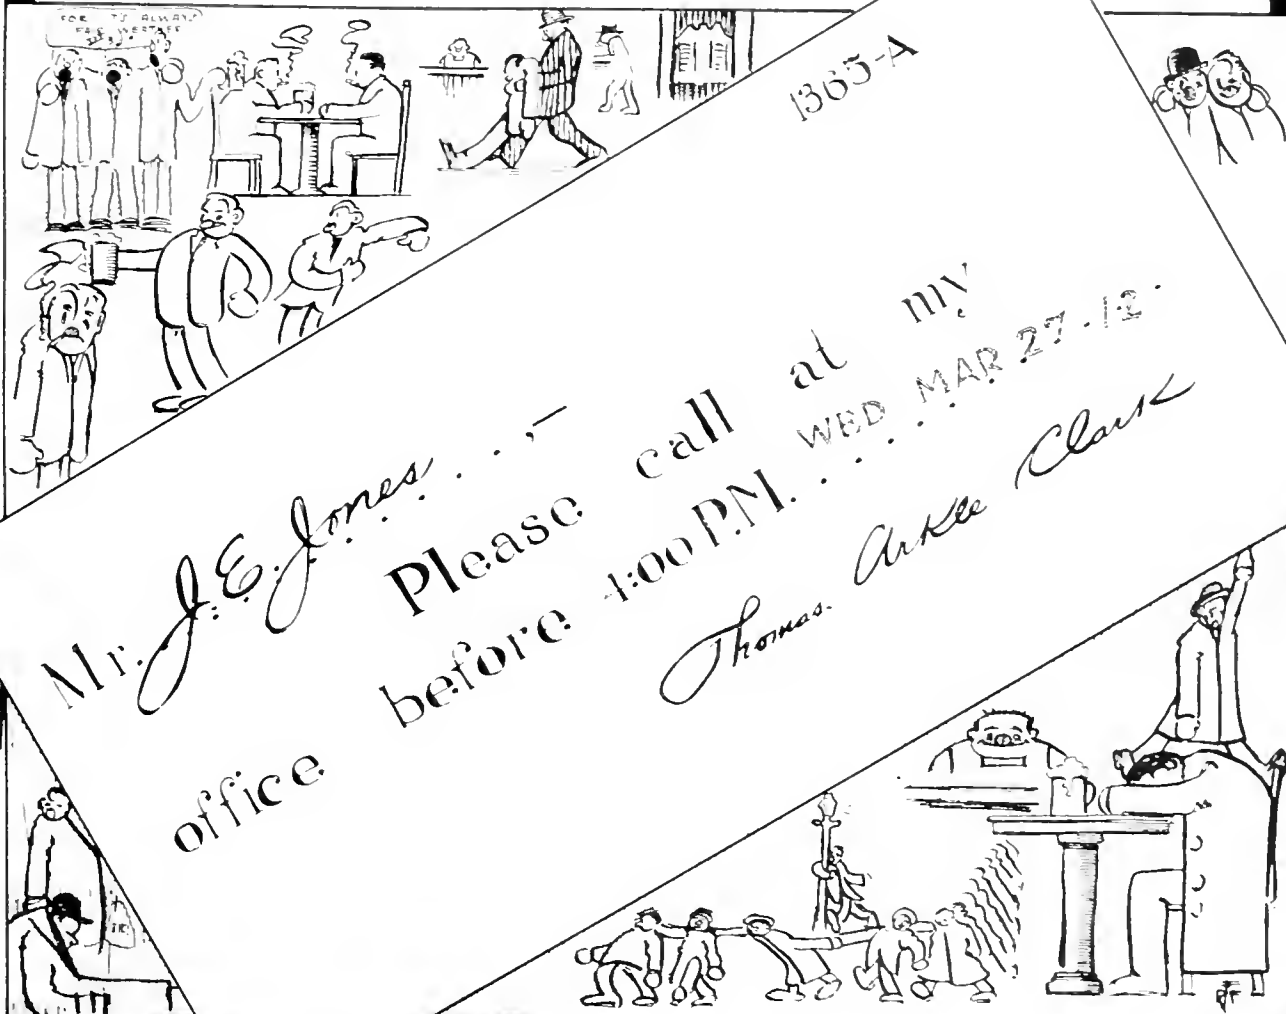 FOR IT'S ALWAYS
FAIR WEATHER
1365-A
Mr. J. E. Jones . . . ,—
Please call at my
office before 4:00 P.M. WED MAR 27.12.
Thomas Arkle Clark